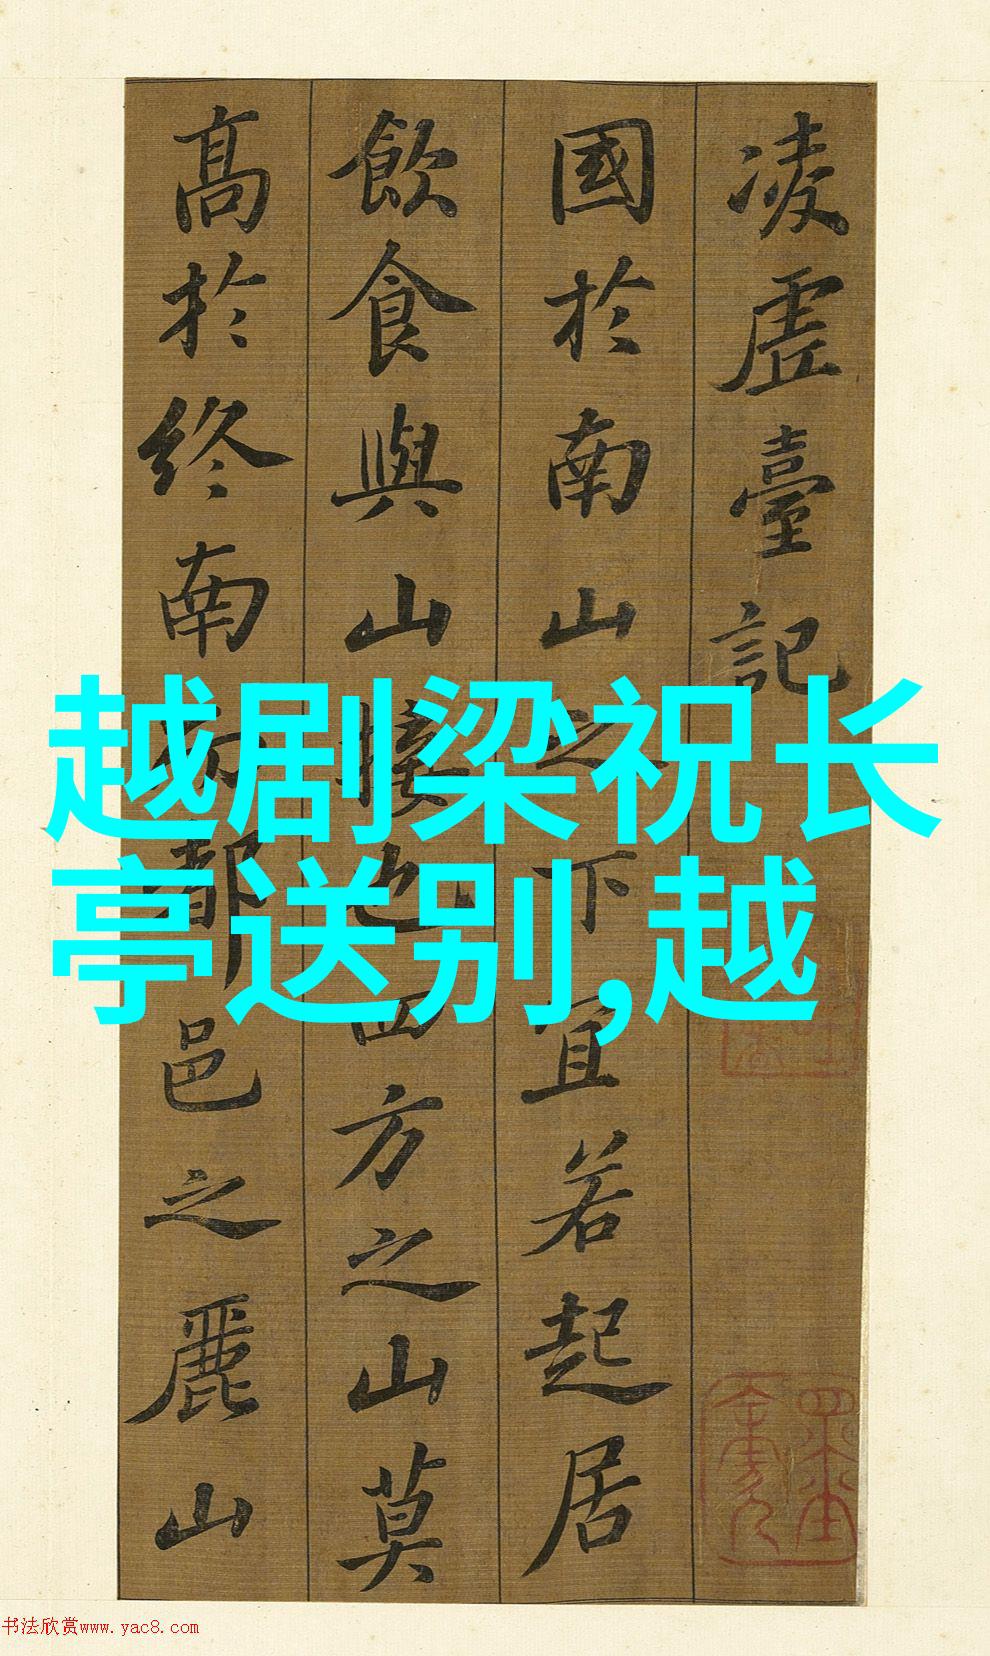 凌虛臺記
國於南山之下宜若起居
飲食與山接也四方之山莫
高於終南而都邑之麗山
越剧梁祝长
亭送别,越
书法欣赏www.yac8.com